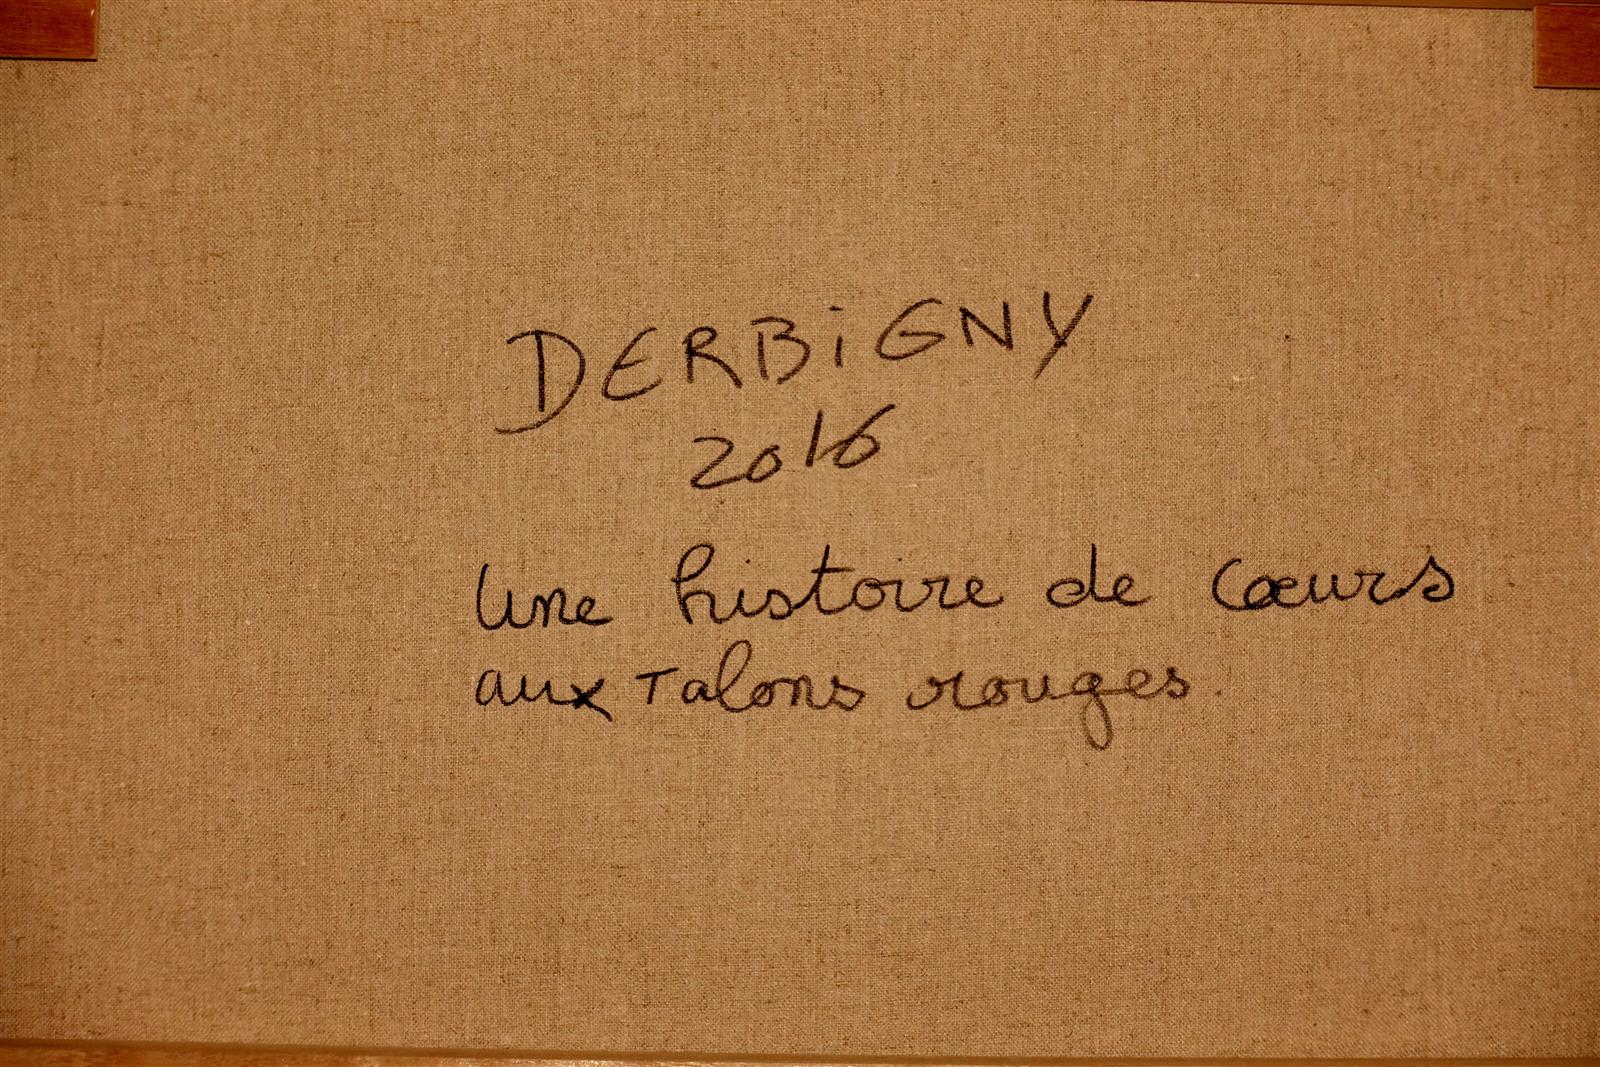 DERBiGNY
2016
Une histoire de Cœurs
aux Talons rouges.